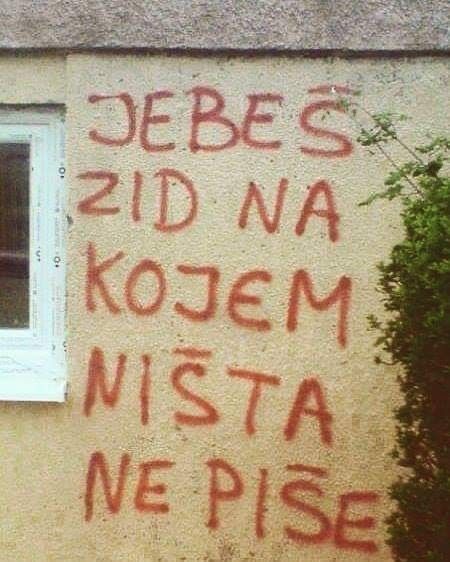 JEBEŠ
ZID NA
KOJEM
NIŠTA
NE PIŠE